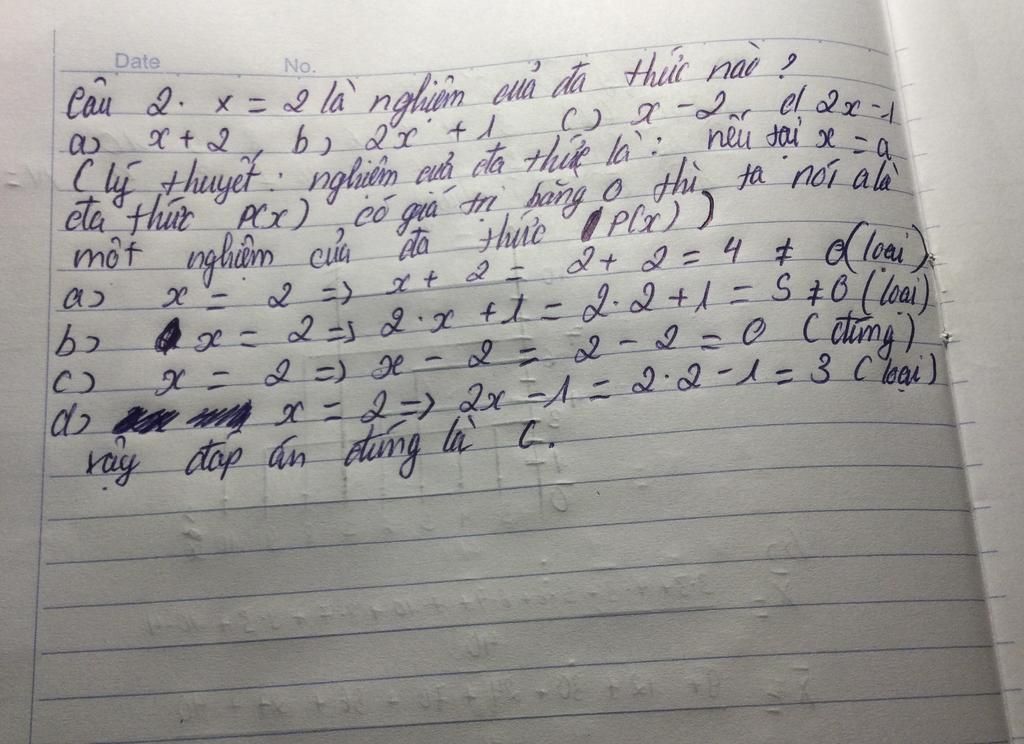 Date No.
Câu 2. x = 2 là nghiệm của đa thức nào?
a) x + 2, b) 2x + 1 c) x - 2, d) 2x - 1
(lý thuyết: nghiệm của đa thức là: nếu tại x = a
đa thức P(x) có giá trị bằng 0 thì, ta nói a là
một nghiệm của đa thức P(x))
a) x = 2 => x + 2 = 2 + 2 = 4 ≠ 0 (loại)
b) x = 2 => 2 . x + 1 = 2 . 2 + 1 = 5 ≠ 0 (loại)
c) x = 2 => x - 2 = 2 - 2 = 0 (đúng)
d) x = 2 => 2x - 1 = 2 . 2 - 1 = 3 (loại)
vậy đáp án đúng là C.